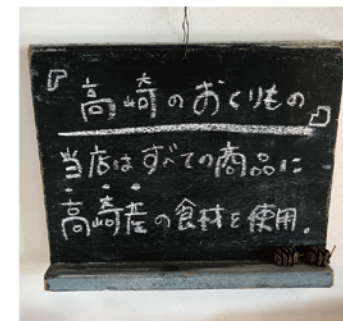 『高崎のおくりもの』
当店はすべての商品に
高崎産の食材を使用。